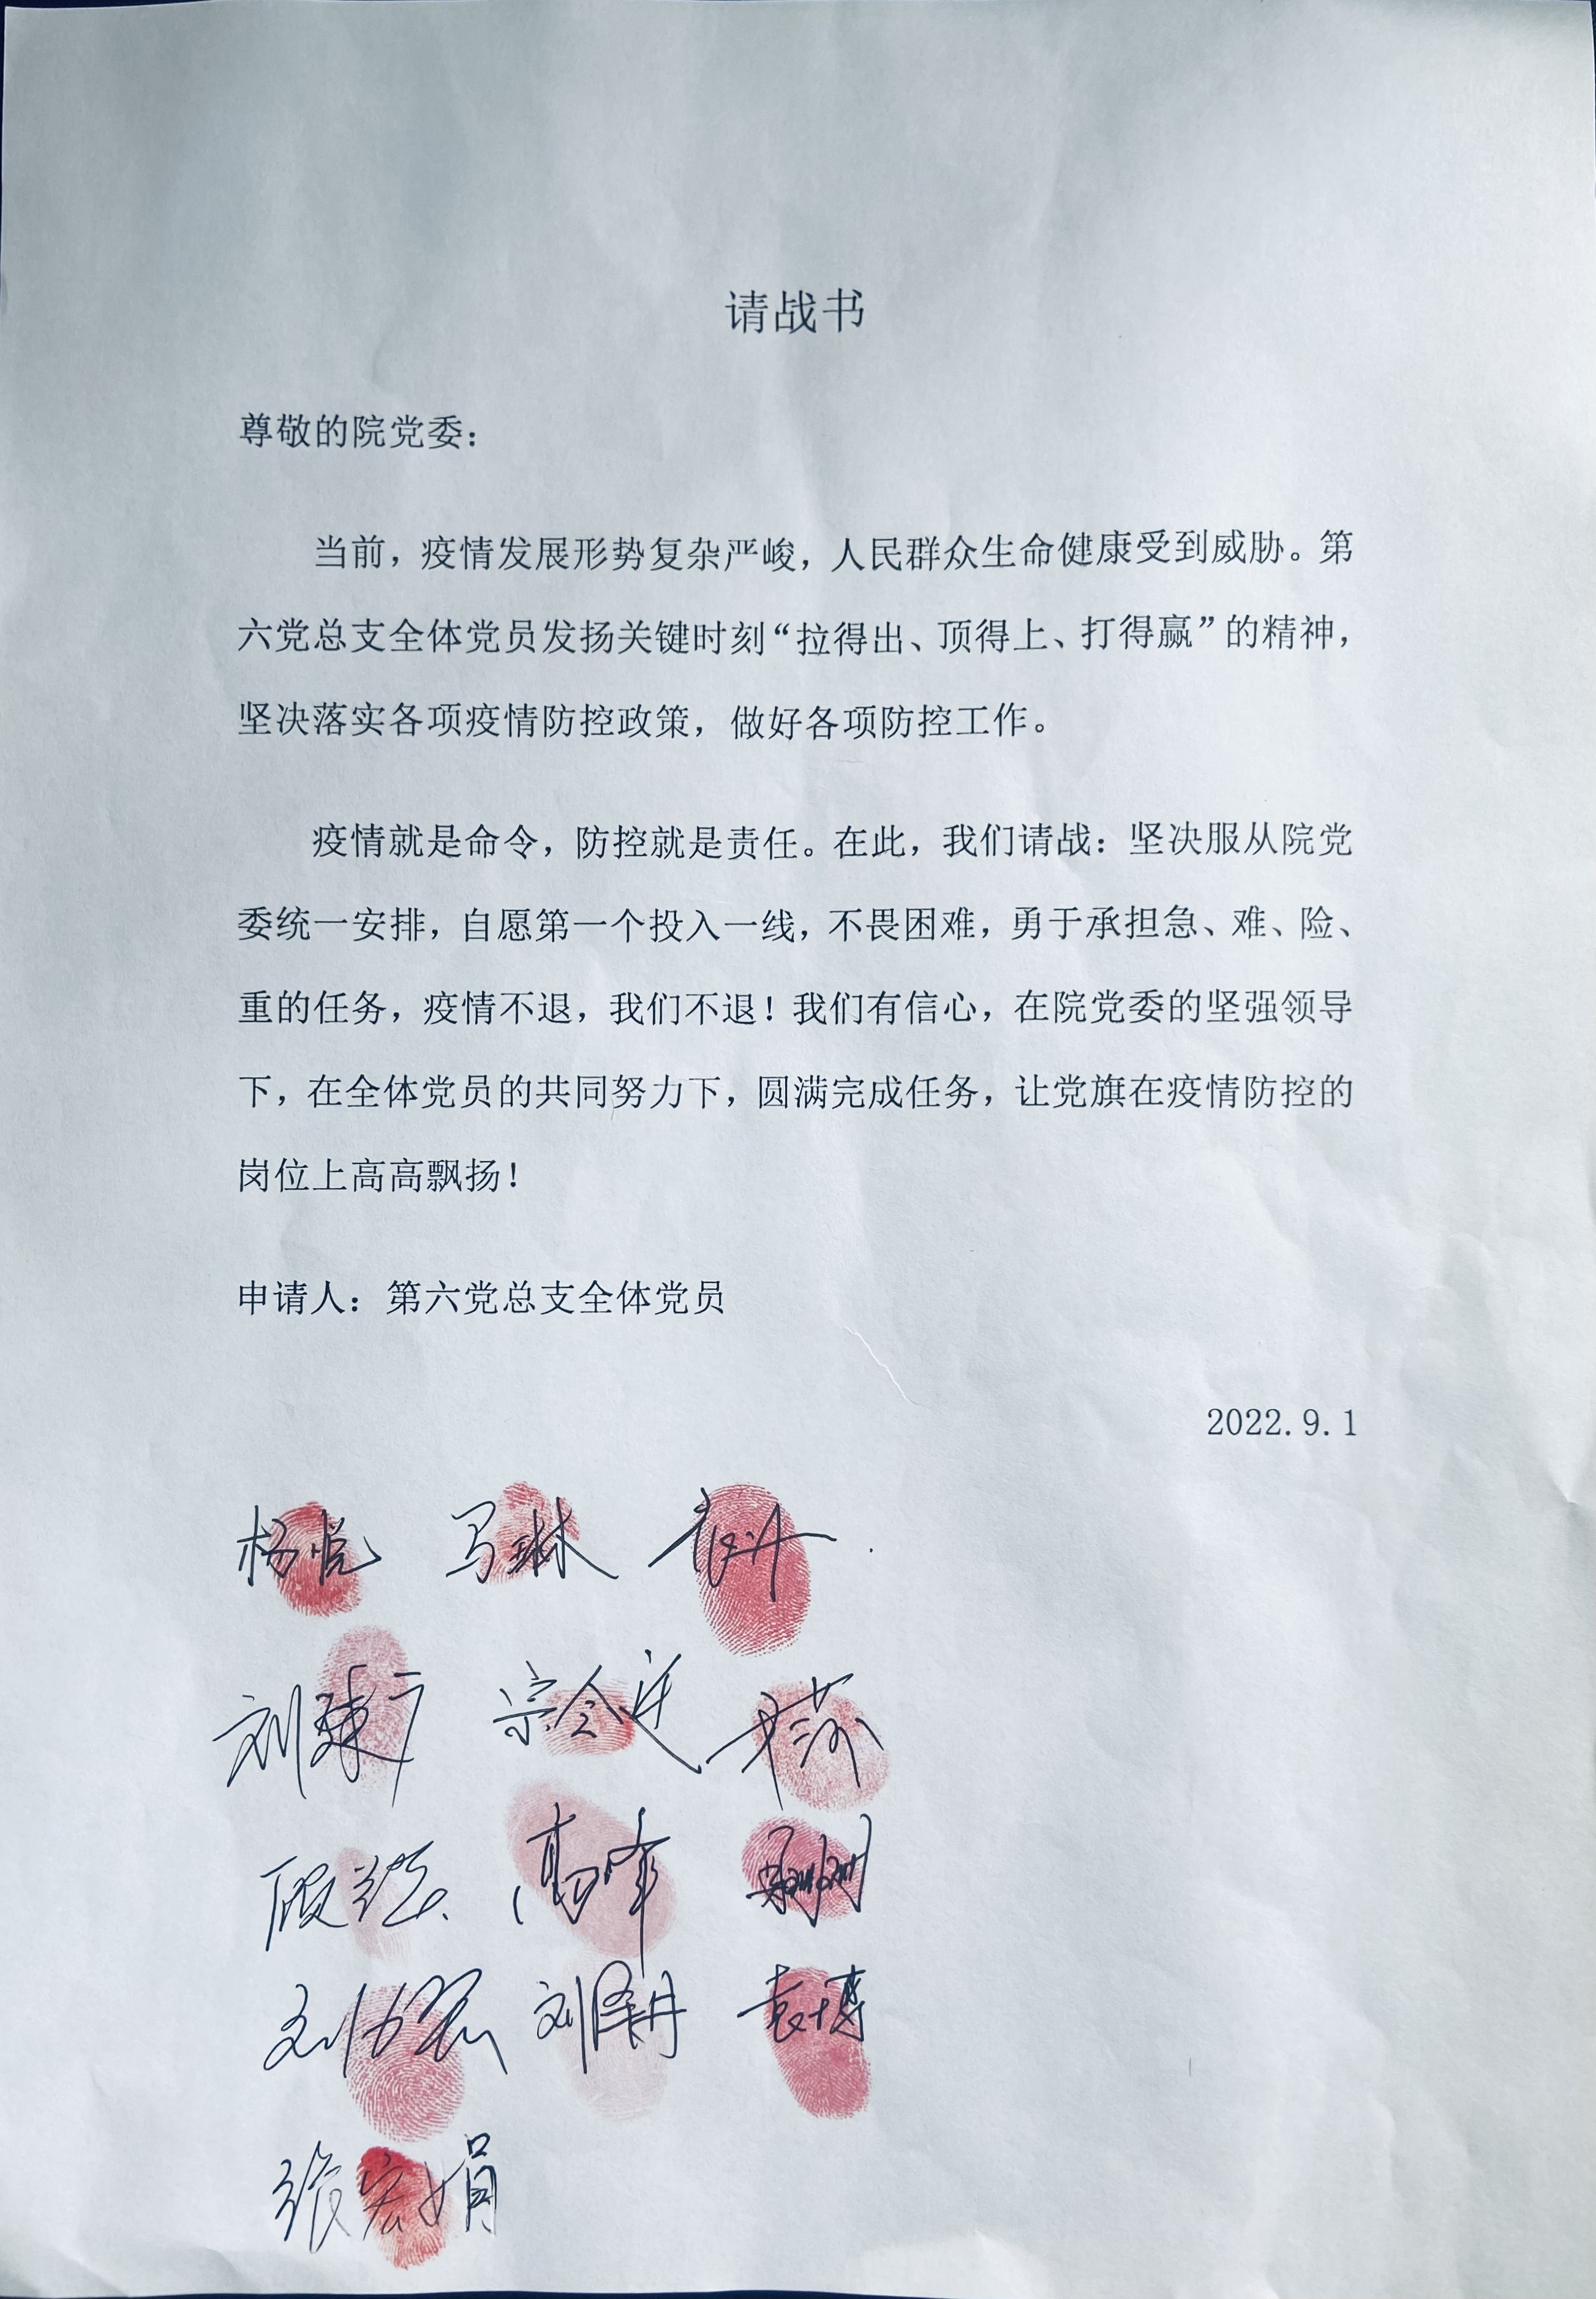 请战书
尊敬的院党委：
当前，疫情发展形势复杂严峻，人民群众生命健康受到威胁。第
六党总支全体党员发扬关键时刻“拉得出、顶得上、打得赢”的精神，
坚决落实各项疫情防控政策，做好各项防控工作。
疫情就是命令，防控就是责任。在此，我们请战：坚决服从院党
委统一安排，自愿第一个投入一线，不畏困难，勇于承担急、难、险、
重的任务，疫情不退，我们不退！我们有信心，在院党委的坚强领导
下，在全体党员的共同努力下，圆满完成任务，让党旗在疫情防控的
岗位上高高飘扬！
申请人：第六党总支全体党员
2022.9.1
杨悦 马琳
刘建广
高峰
刘 袁博
张宏娟